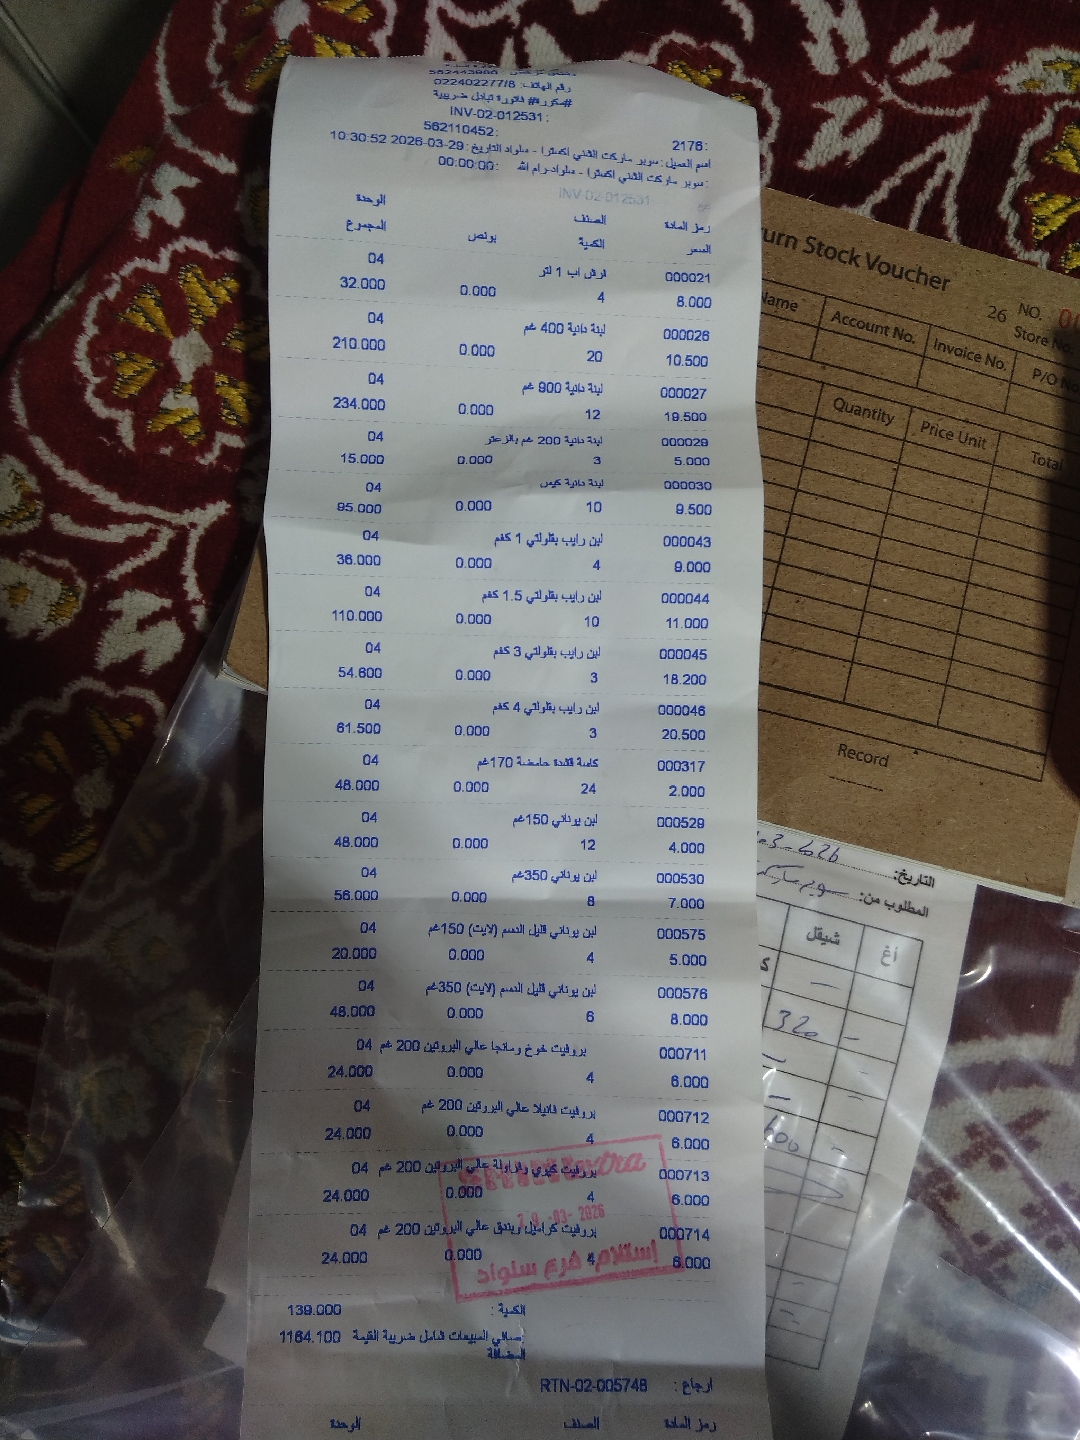 562443986
رقم الهاتف: 022402277/8
#مكررة# فاتورة تبادل ضريبية
INV-02-012531:
2176: 562110452:
اسم العميل: سوبر ماركت الشني اكسترا - سلواد التاريخ: 2026-03-29 10:30:52
: سوبر ماركت الشني اكسترا - سلواد-رام الله : 00:00:00
INV-02-012531
رمز المادة الصنف الوحدة
السعر الكمية بونص المجموع
000021 فرش اب 1 لتر 04
8.000 4 0.000 32.000
000026 لبنة دانية 400 غم 04
10.500 20 0.000 210.000
000027 لبنة دانية 900 غم 04
19.500 12 0.000 234.000
000029 لبنة دانية 200 غم بالزعتر 04
5.000 3 0.000 15.000
000030 لبنة دانية كيس 04
9.500 10 0.000 95.000
000043 لبن رايب بقلولتي 1 كغم 04
9.000 4 0.000 36.000
000044 لبن رايب بقلولتي 1.5 كغم 04
11.000 10 0.000 110.000
000045 لبن رايب بقلولتي 3 كغم 04
18.200 3 0.000 54.600
000046 لبن رايب بقلولتي 4 كغم 04
20.500 3 0.000 61.500
000317 كاسة قشدة حامضة 170غم 04
2.000 24 0.000 48.000
000529 لبن يوناني 150غم 04
4.000 12 0.000 48.000
000530 لبن يوناني 350غم 04
7.000 8 0.000 56.000
000575 لبن يوناني قليل الدسم (لايت) 150غم 04
5.000 4 0.000 20.000
000576 لبن يوناني قليل الدسم (لايت) 350غم 04
8.000 6 0.000 48.000
000711 بروفيت خوخ ومانجا عالي البروتين 200 غم 04
6.000 4 0.000 24.000
000712 بروفيت فانيلا عالي البروتين 200 غم 04
6.000 4 0.000 24.000
000713 بروفيت كيوي وفراولة عالي البروتين 200 غم 04
6.000 4 0.000 24.000
000714 بروفيت كراميل وبندق عالي البروتين 200 غم 04
6.000 4 0.000 24.000
extra
-03-2026
إستلام فرع سلواد
الكمية : 139.000
صافي المبيعات شامل ضريبة القيمة 1164.100
المضافة
ارجاع : RTN-02-005748
رمز المادة الصنف الوحدة
Stock Voucher
26 NO.
Store No.
Name Account No. Invoice No. P/O No
Quantity Price Unit Total
Record
التاريخ:
المطلوب من:
أغ شيقل
320